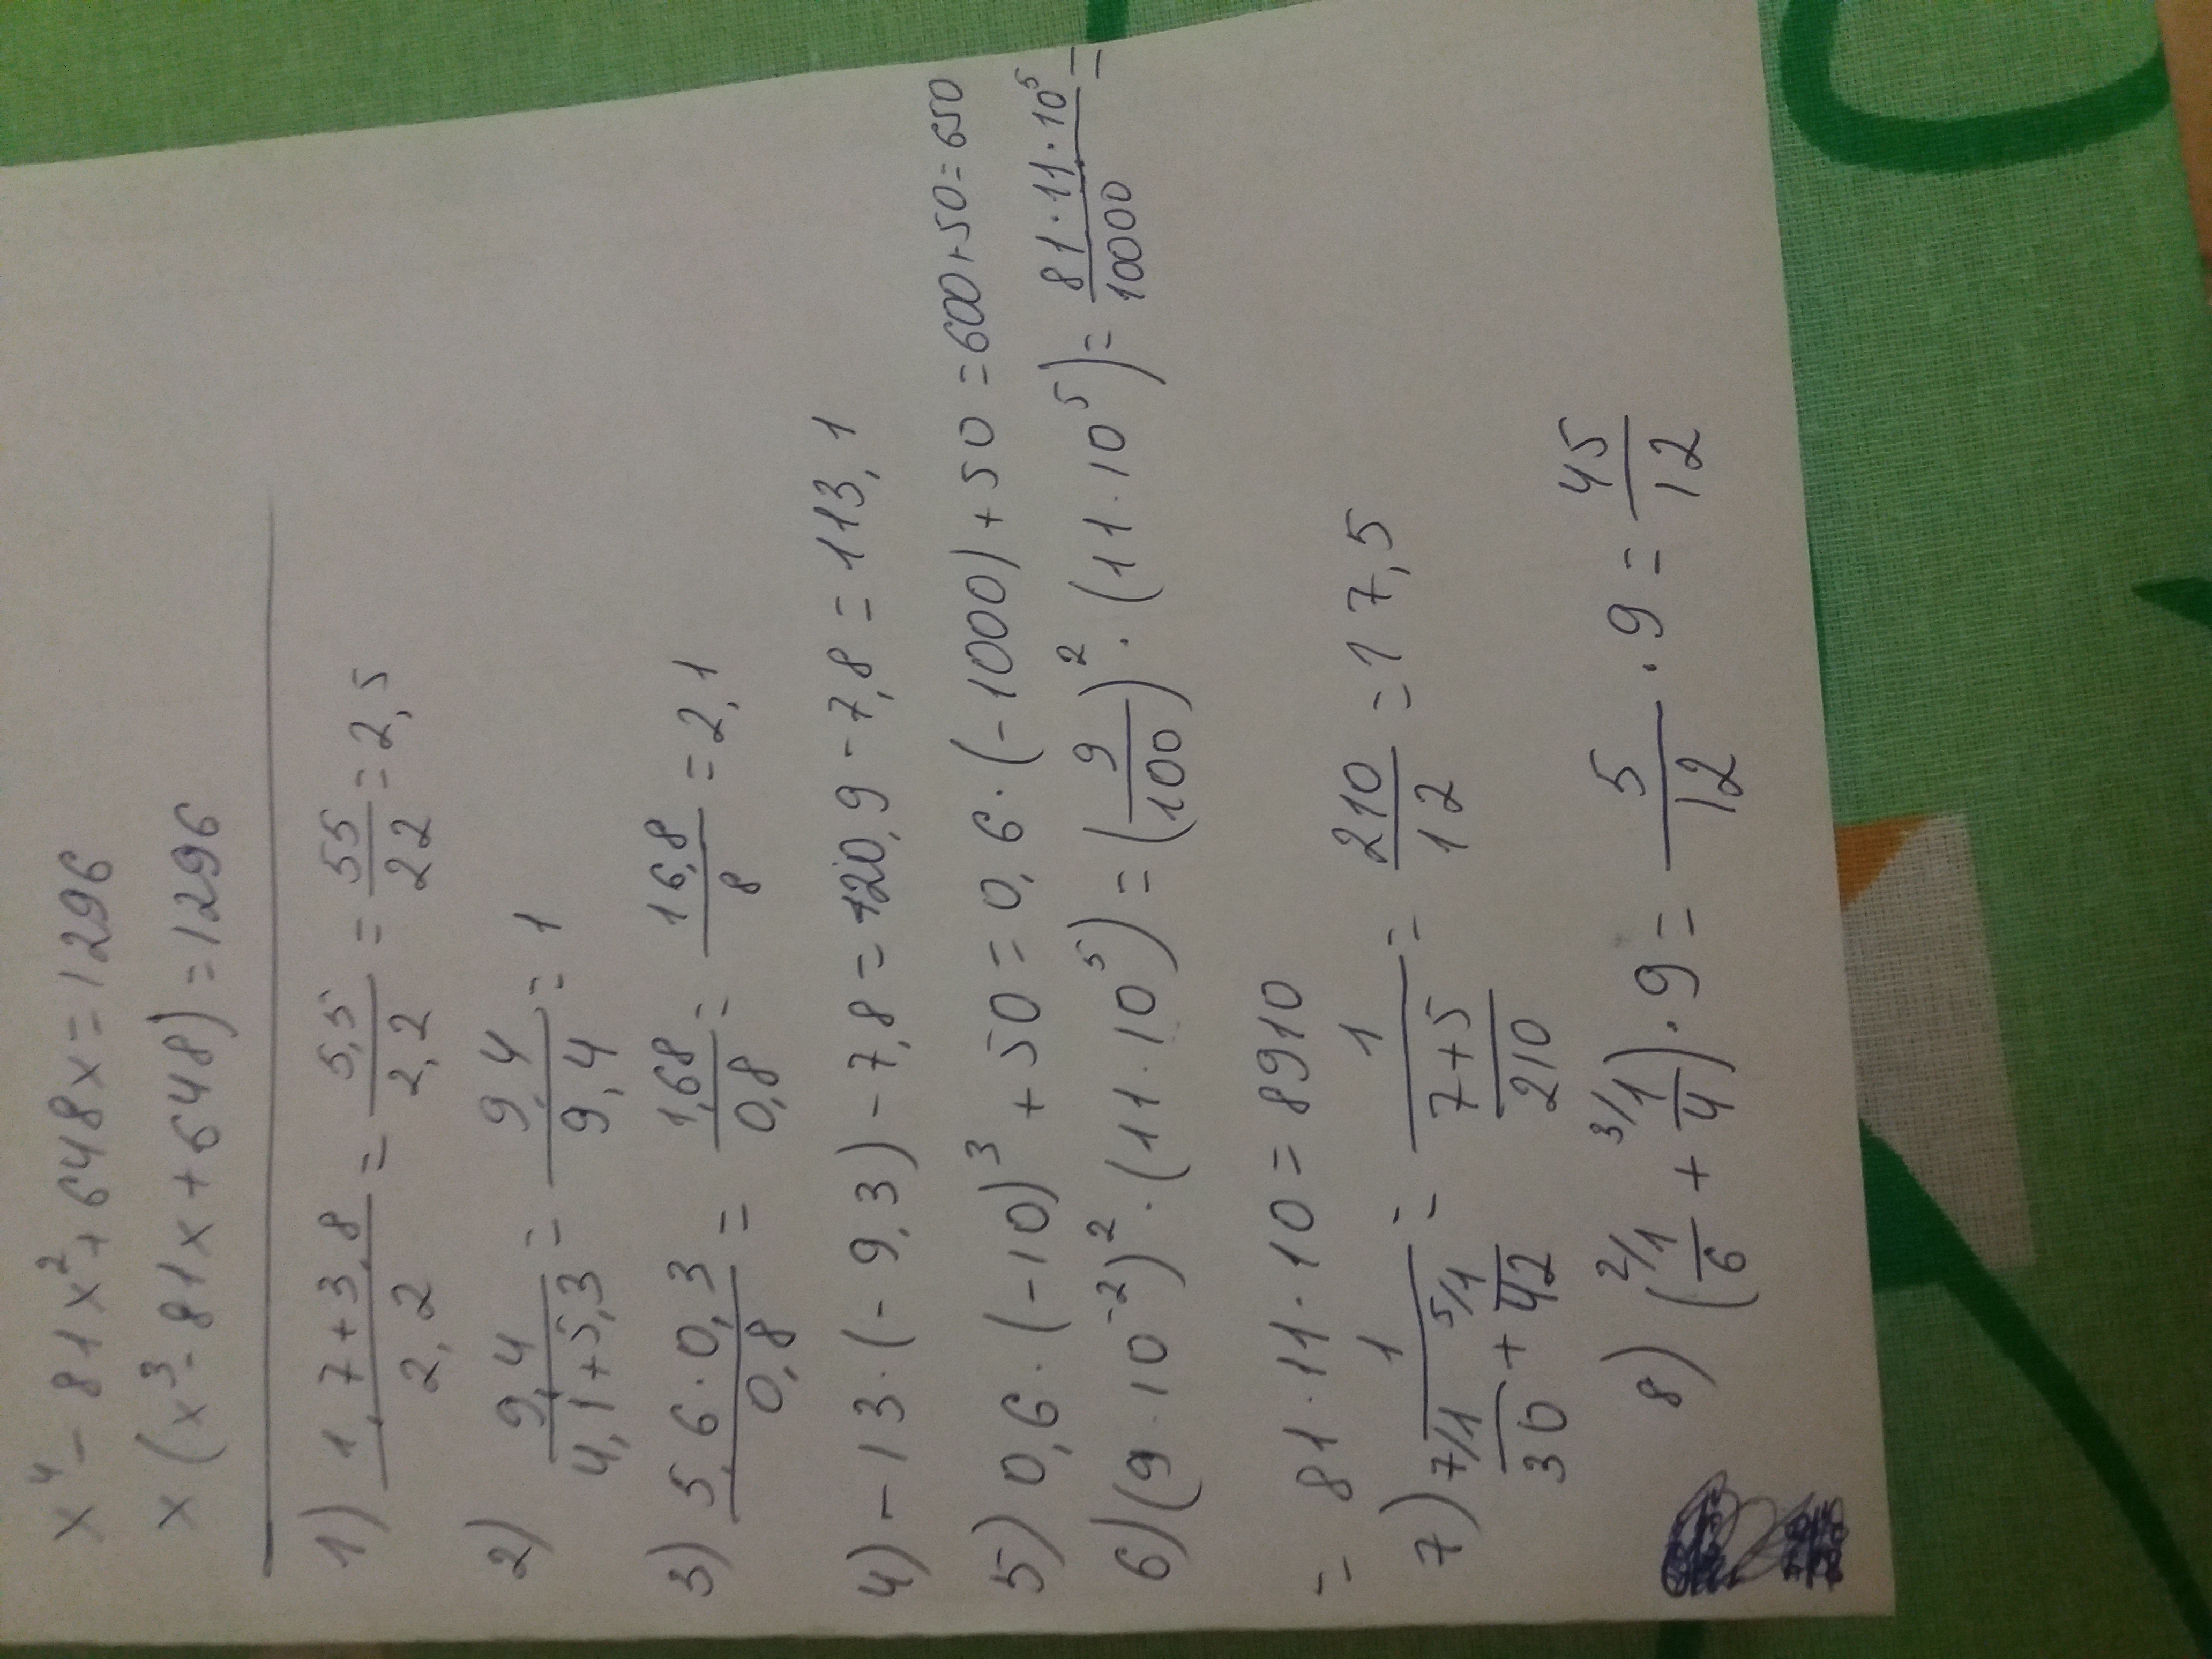 x⁴ - 81x² + 648x = 1296
x(x³ - 81x + 648) = 1296
1) (1,7+3,8)/2,2 = 5,5/2,2 = 55/22 = 2,5
2) 9,4/(4,1+5,3) = 9,4/9,4 = 1
3) (5,6·0,3)/0,8 = 1,68/0,8 = 16,8/8 = 2,1
4) -13·(-9,3) - 7,8 = 120,9 - 7,8 = 113,1
5) 0,6·(-10)³ + 50 = 0,6·(-1000) + 50 = 600+50 = 650
6) (9·10⁻²)²·(11·10⁵) = (9/100)²·(11·10⁵) = (81·11·10⁵)/10000 =
= 81·11·10 = 8910
7) 1/(⁷⁄1/30 + ⁵⁄1/42) = 1/((7+5)/210) = 210/12 = 17,5
8) (²⁄1/6 + ³⁄1/4)·9 = 5/12·9 = 45/12